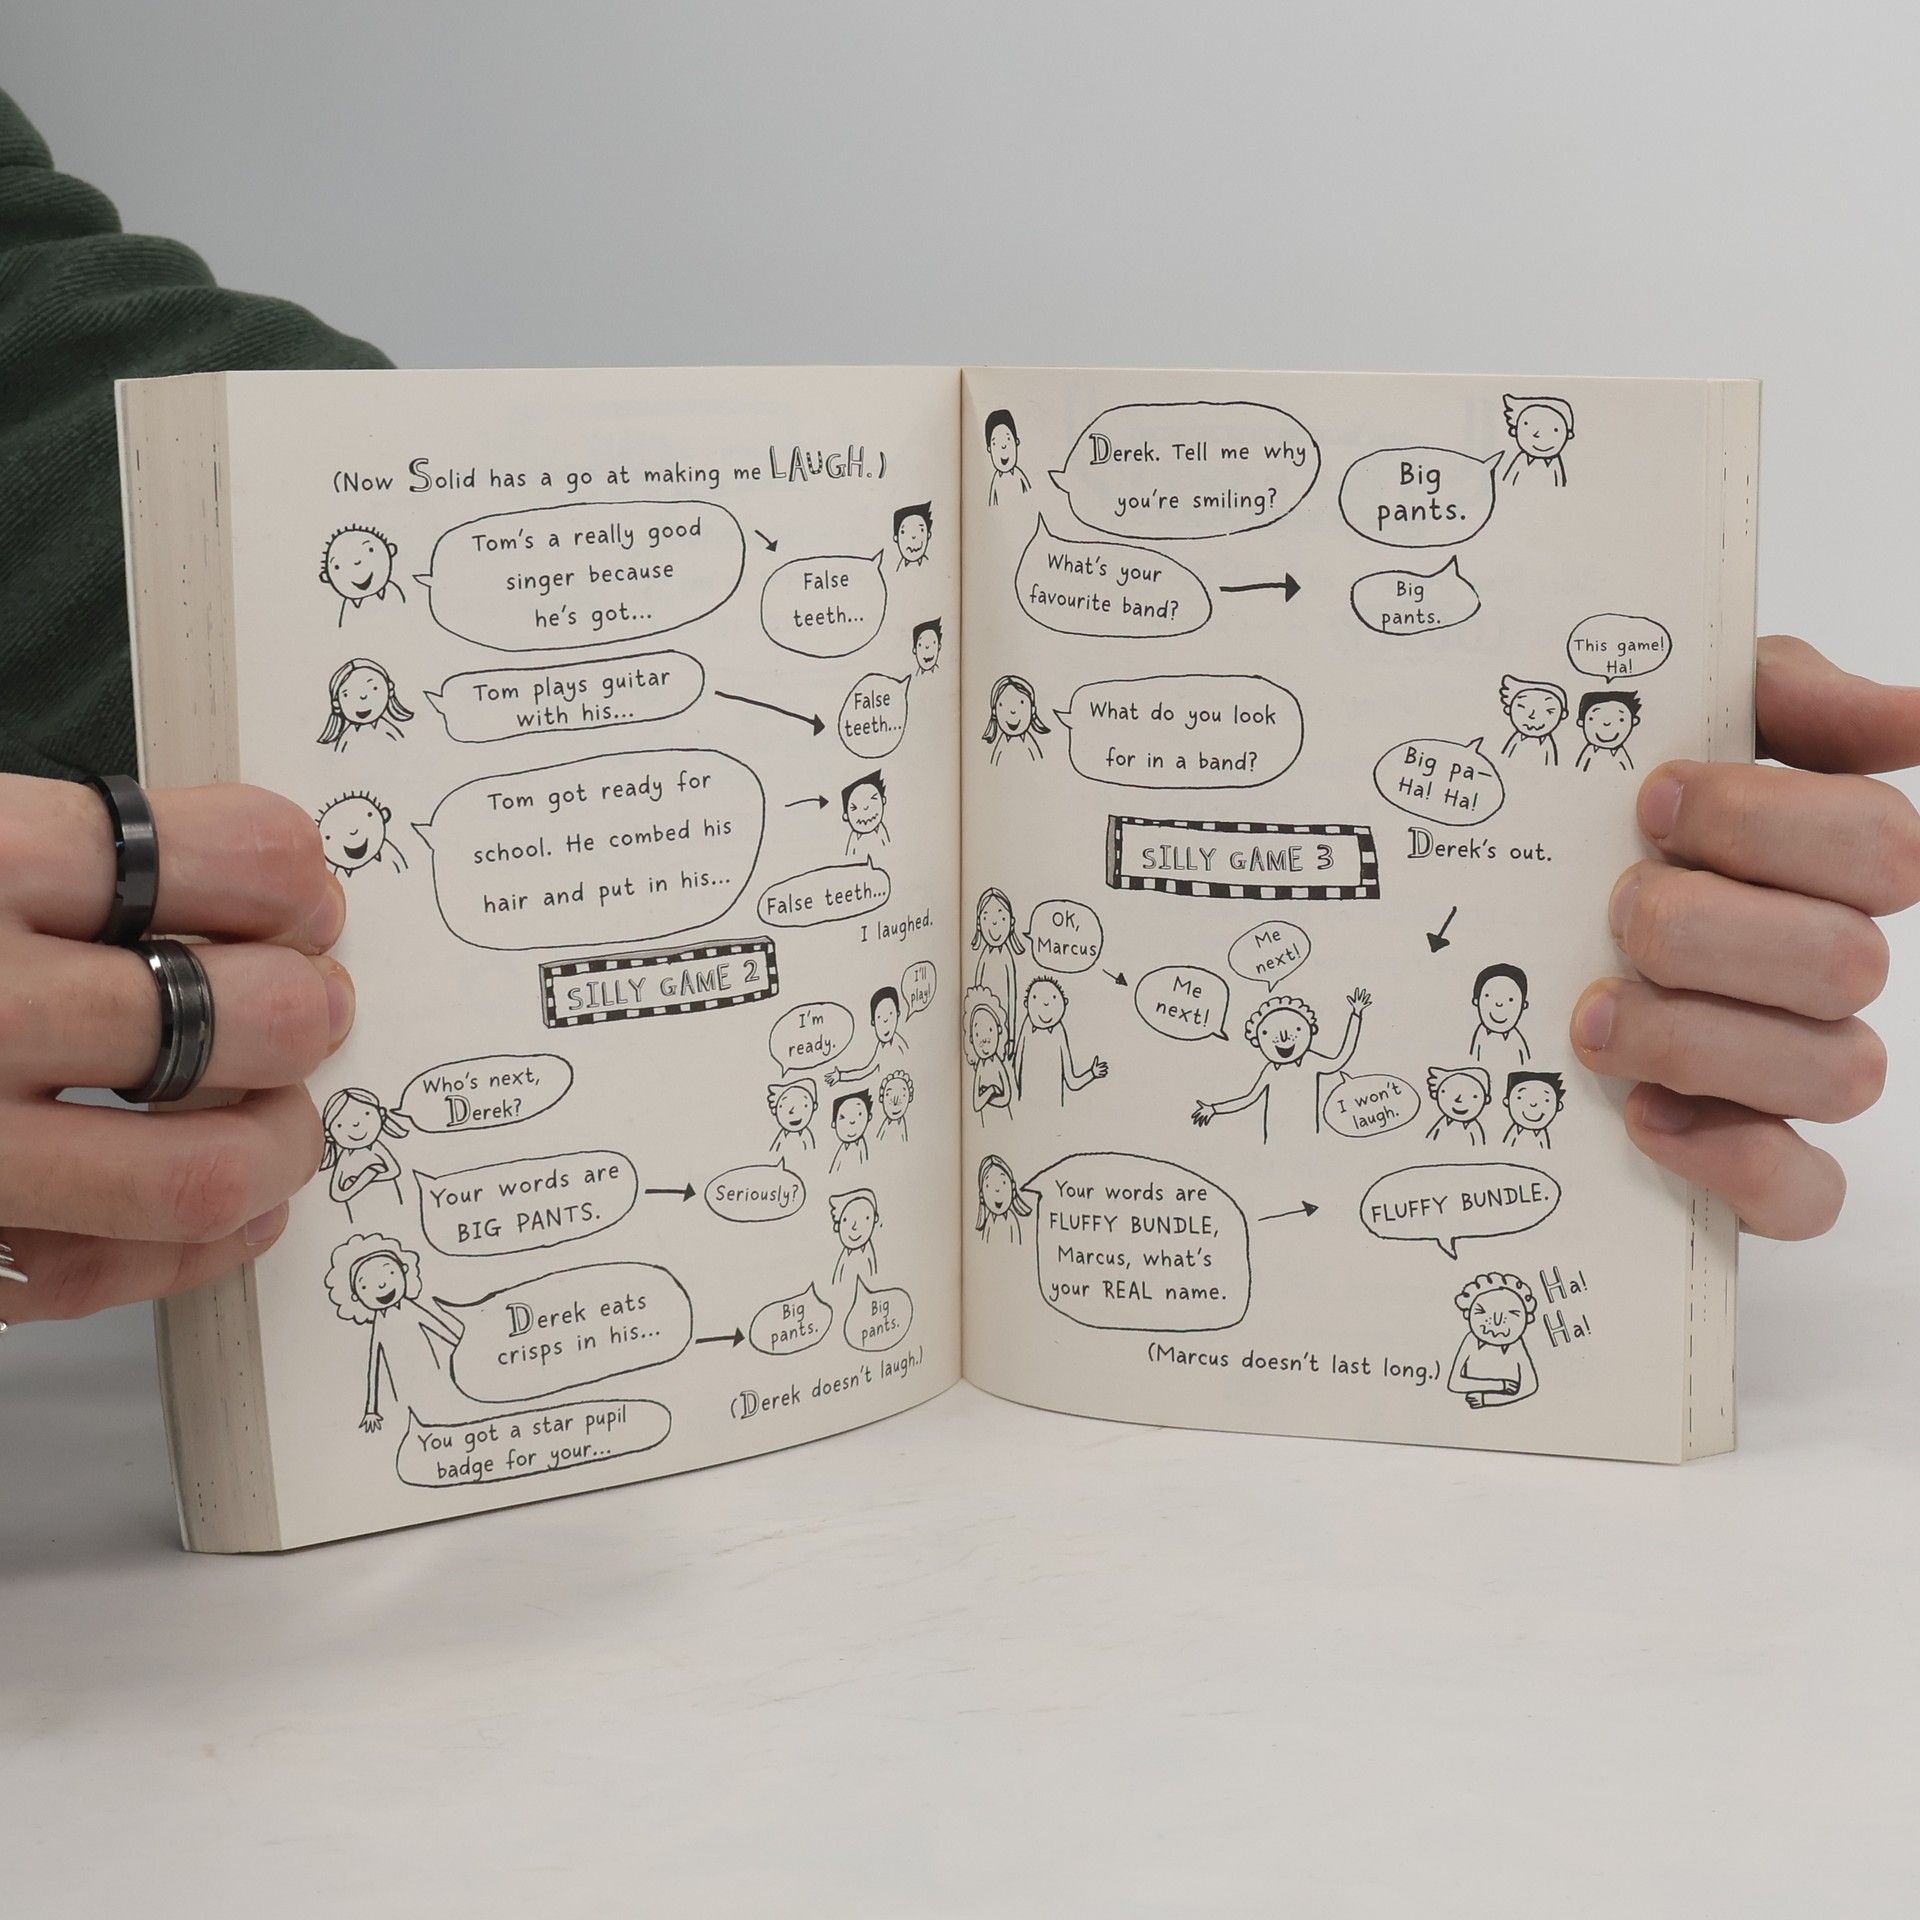 (Now Solid has a go at making me LAUGH.)
Tom's a really good
singer because
he's got...
False
teeth...
Tom plays guitar
with his...
False
teeth...
Tom got ready for
school. He combed his
hair and put in his...
False teeth...
I laughed.
SILLY GAME 2
I'll
play!
I'm
ready.
Who's next,
Derek?
Your words are
BIG PANTS.
Seriously?
Derek eats
crisps in his...
Big
pants.
Big
pants.
(Derek doesn't laugh.)
You got a star pupil
badge for your...
Derek. Tell me why
you're smiling?
Big
pants.
What's your
favourite band?
Big
pants.
This game!
Ha!
What do you look
for in a band?
Big pa–
Ha! Ha!
Derek's out.
SILLY GAME 3
OK,
Marcus
Me
next!
Me
next!
I won't
laugh.
Your words are
FLUFFY BUNDLE,
Marcus, what's
your REAL name.
FLUFFY BUNDLE.
Ha!
Ha!
(Marcus doesn't last long.)